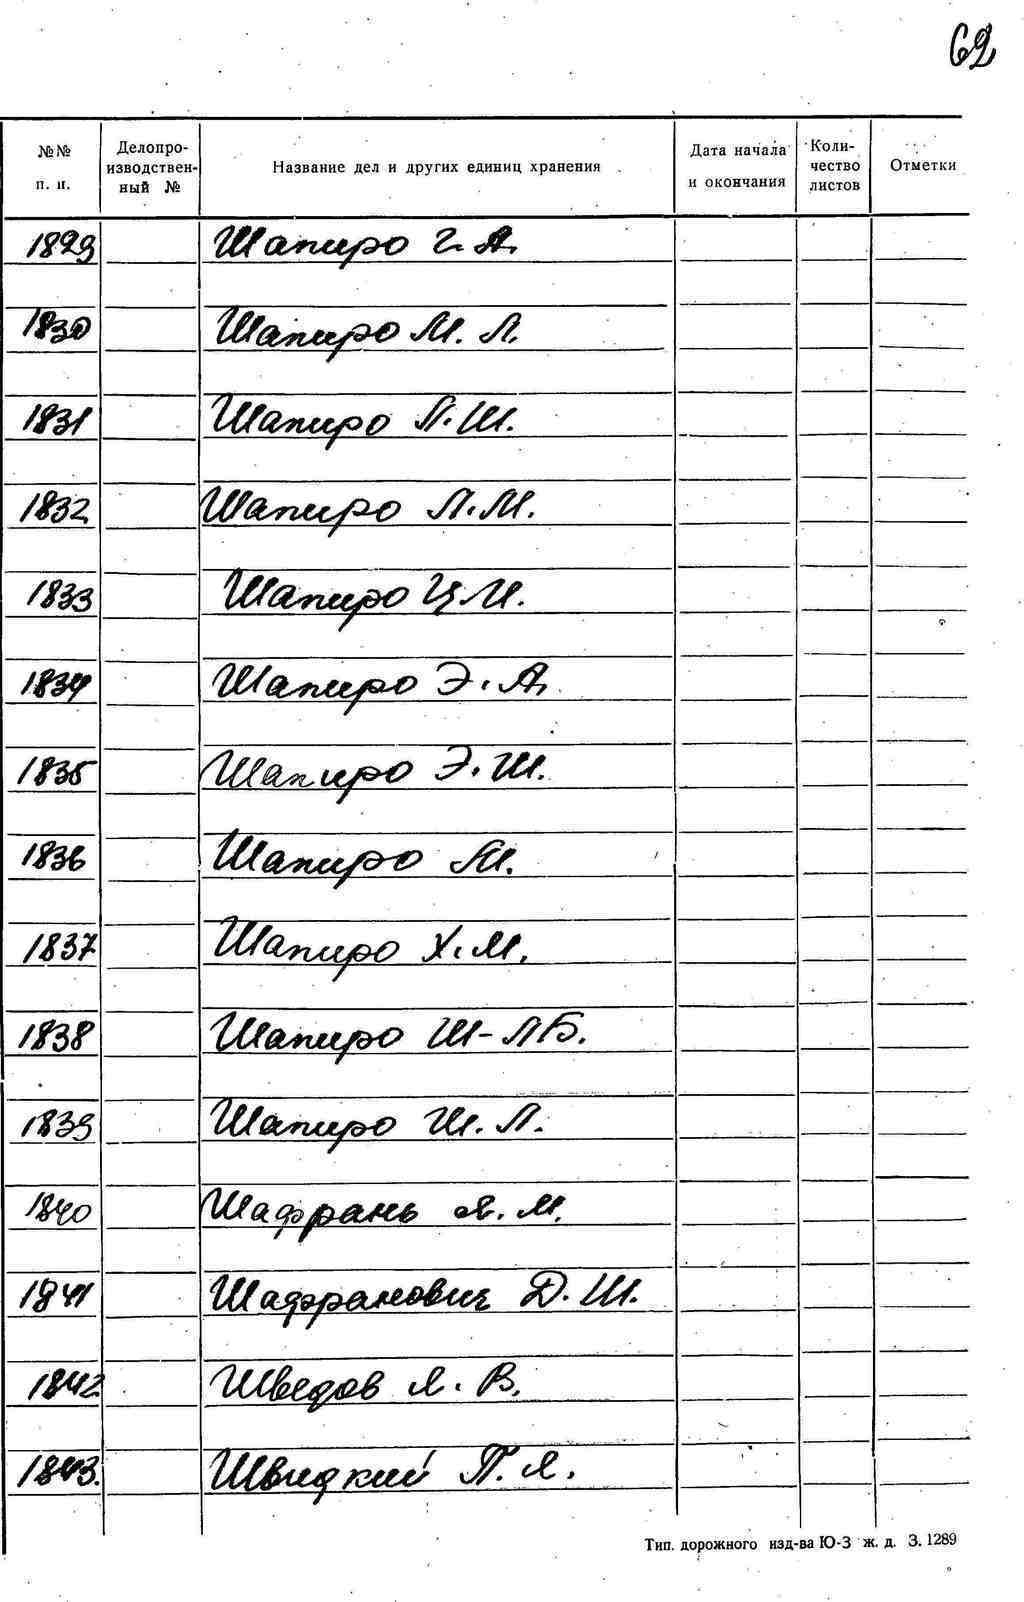 62
№№ п. п. Делопроизводственный № Название дел и других единиц хранения Дата начала и окончания Количество листов Отметки
1829 Шапиро Г. А.
1830 Шапиро М. Л.
1831 Шапиро Л. Ш.
1832 Шапиро Л. М.
1833 Шапиро Ц. И.
1834 Шапиро Э. А.
1835 Шапиро Э. Ш.
1836 Шапиро М.
1837 Шапиро Х. М.
1838 Шапиро Ш-Л Б.
1839 Шапиро Ш. Л.
1840 Шафрань Я. М.
1841 Шафранович Д. Ш.
1842 Шведов Я. В.
1843. Швидкий П. Я.
Тип. дорожного изд-ва Ю-З ж. д. З. 1289